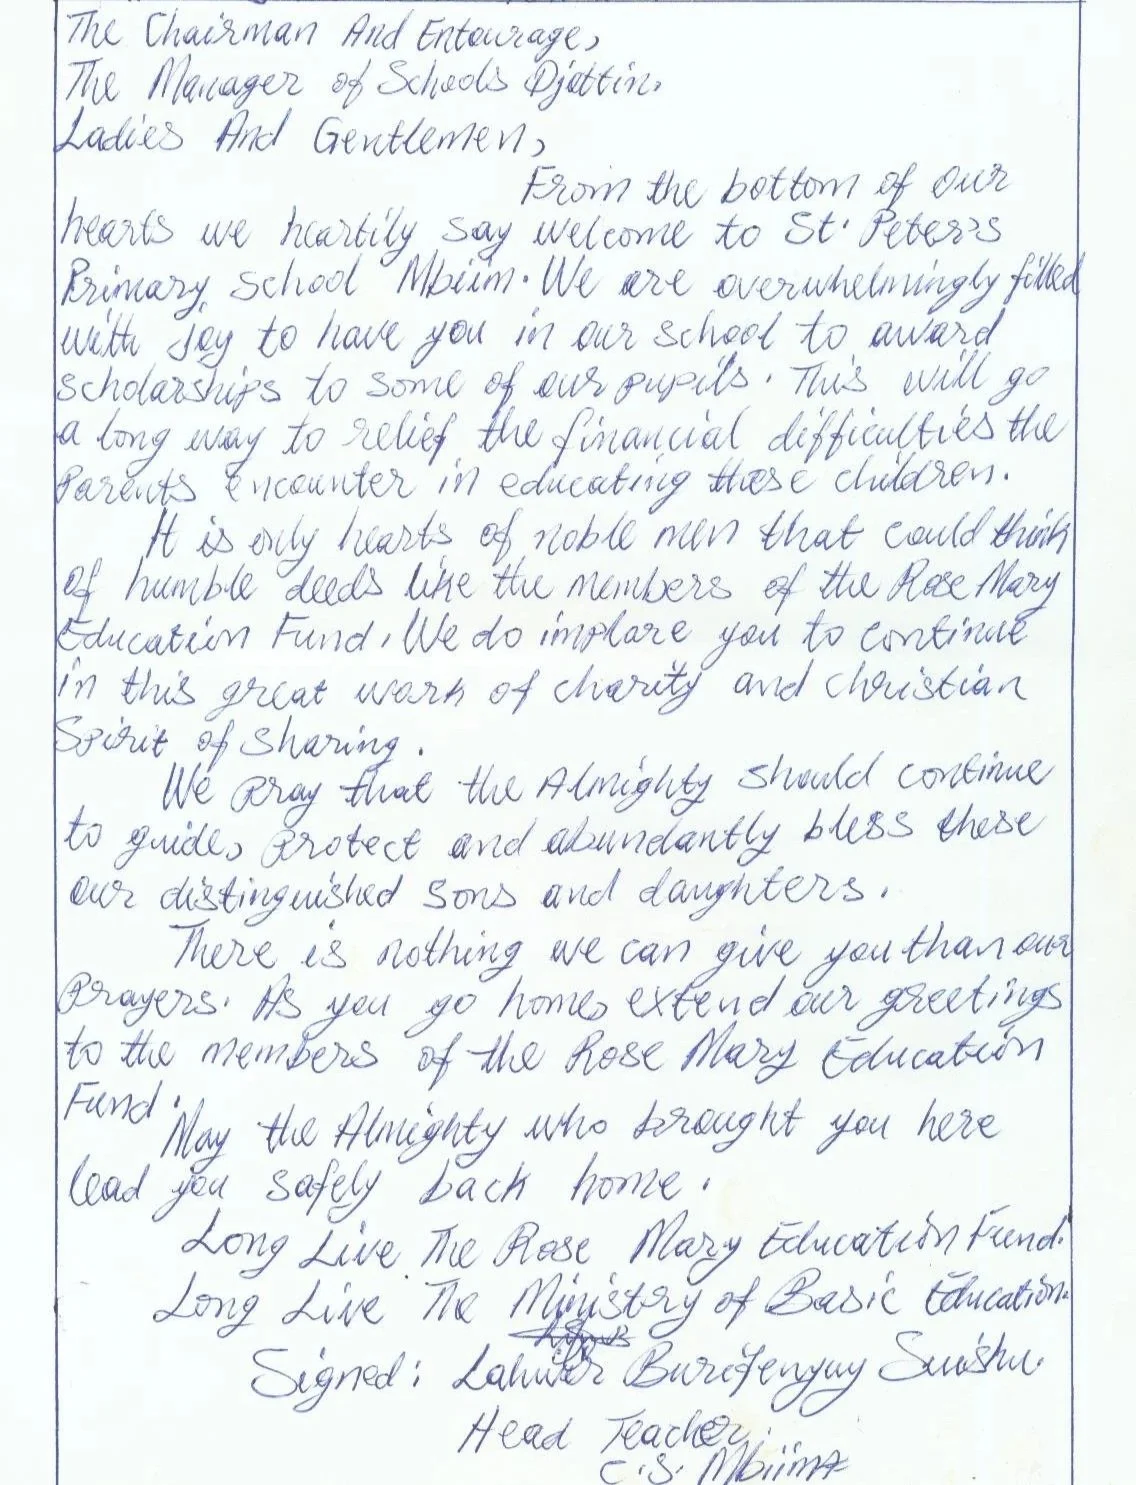 The Chairman And Entourage,
The Manager of Schools Djottin.
Ladies And Gentlemen,
From the bottom of our
hearts we heartily say welcome to St. Peter's
Primary School Mbiim. We are overwhelmingly filled
with joy to have you in our school to award
scholarships to some of our pupils. This will go
a long way to relief the financial difficulties the
Parents encounter in educating these children.
It is only hearts of noble men that could think
of humble deeds like the members of the Rose Mary
Education Fund. We do implore you to continue
in this great work of charity and christian
Spirit of sharing.
We pray that the Almighty should continue
to guide, protect and abundantly bless these
our distinguished sons and daughters.
There is nothing we can give you than our
Prayers. As you go home, extend our greetings
to the members of the Rose Mary Education
Fund.
May the Almighty who brought you here
lead you safely back home.
Long Live The Rose Mary Education Fund.
Long Live The Ministry of Basic Education.
Signed:
Head Teacher
C.S. Mbiim